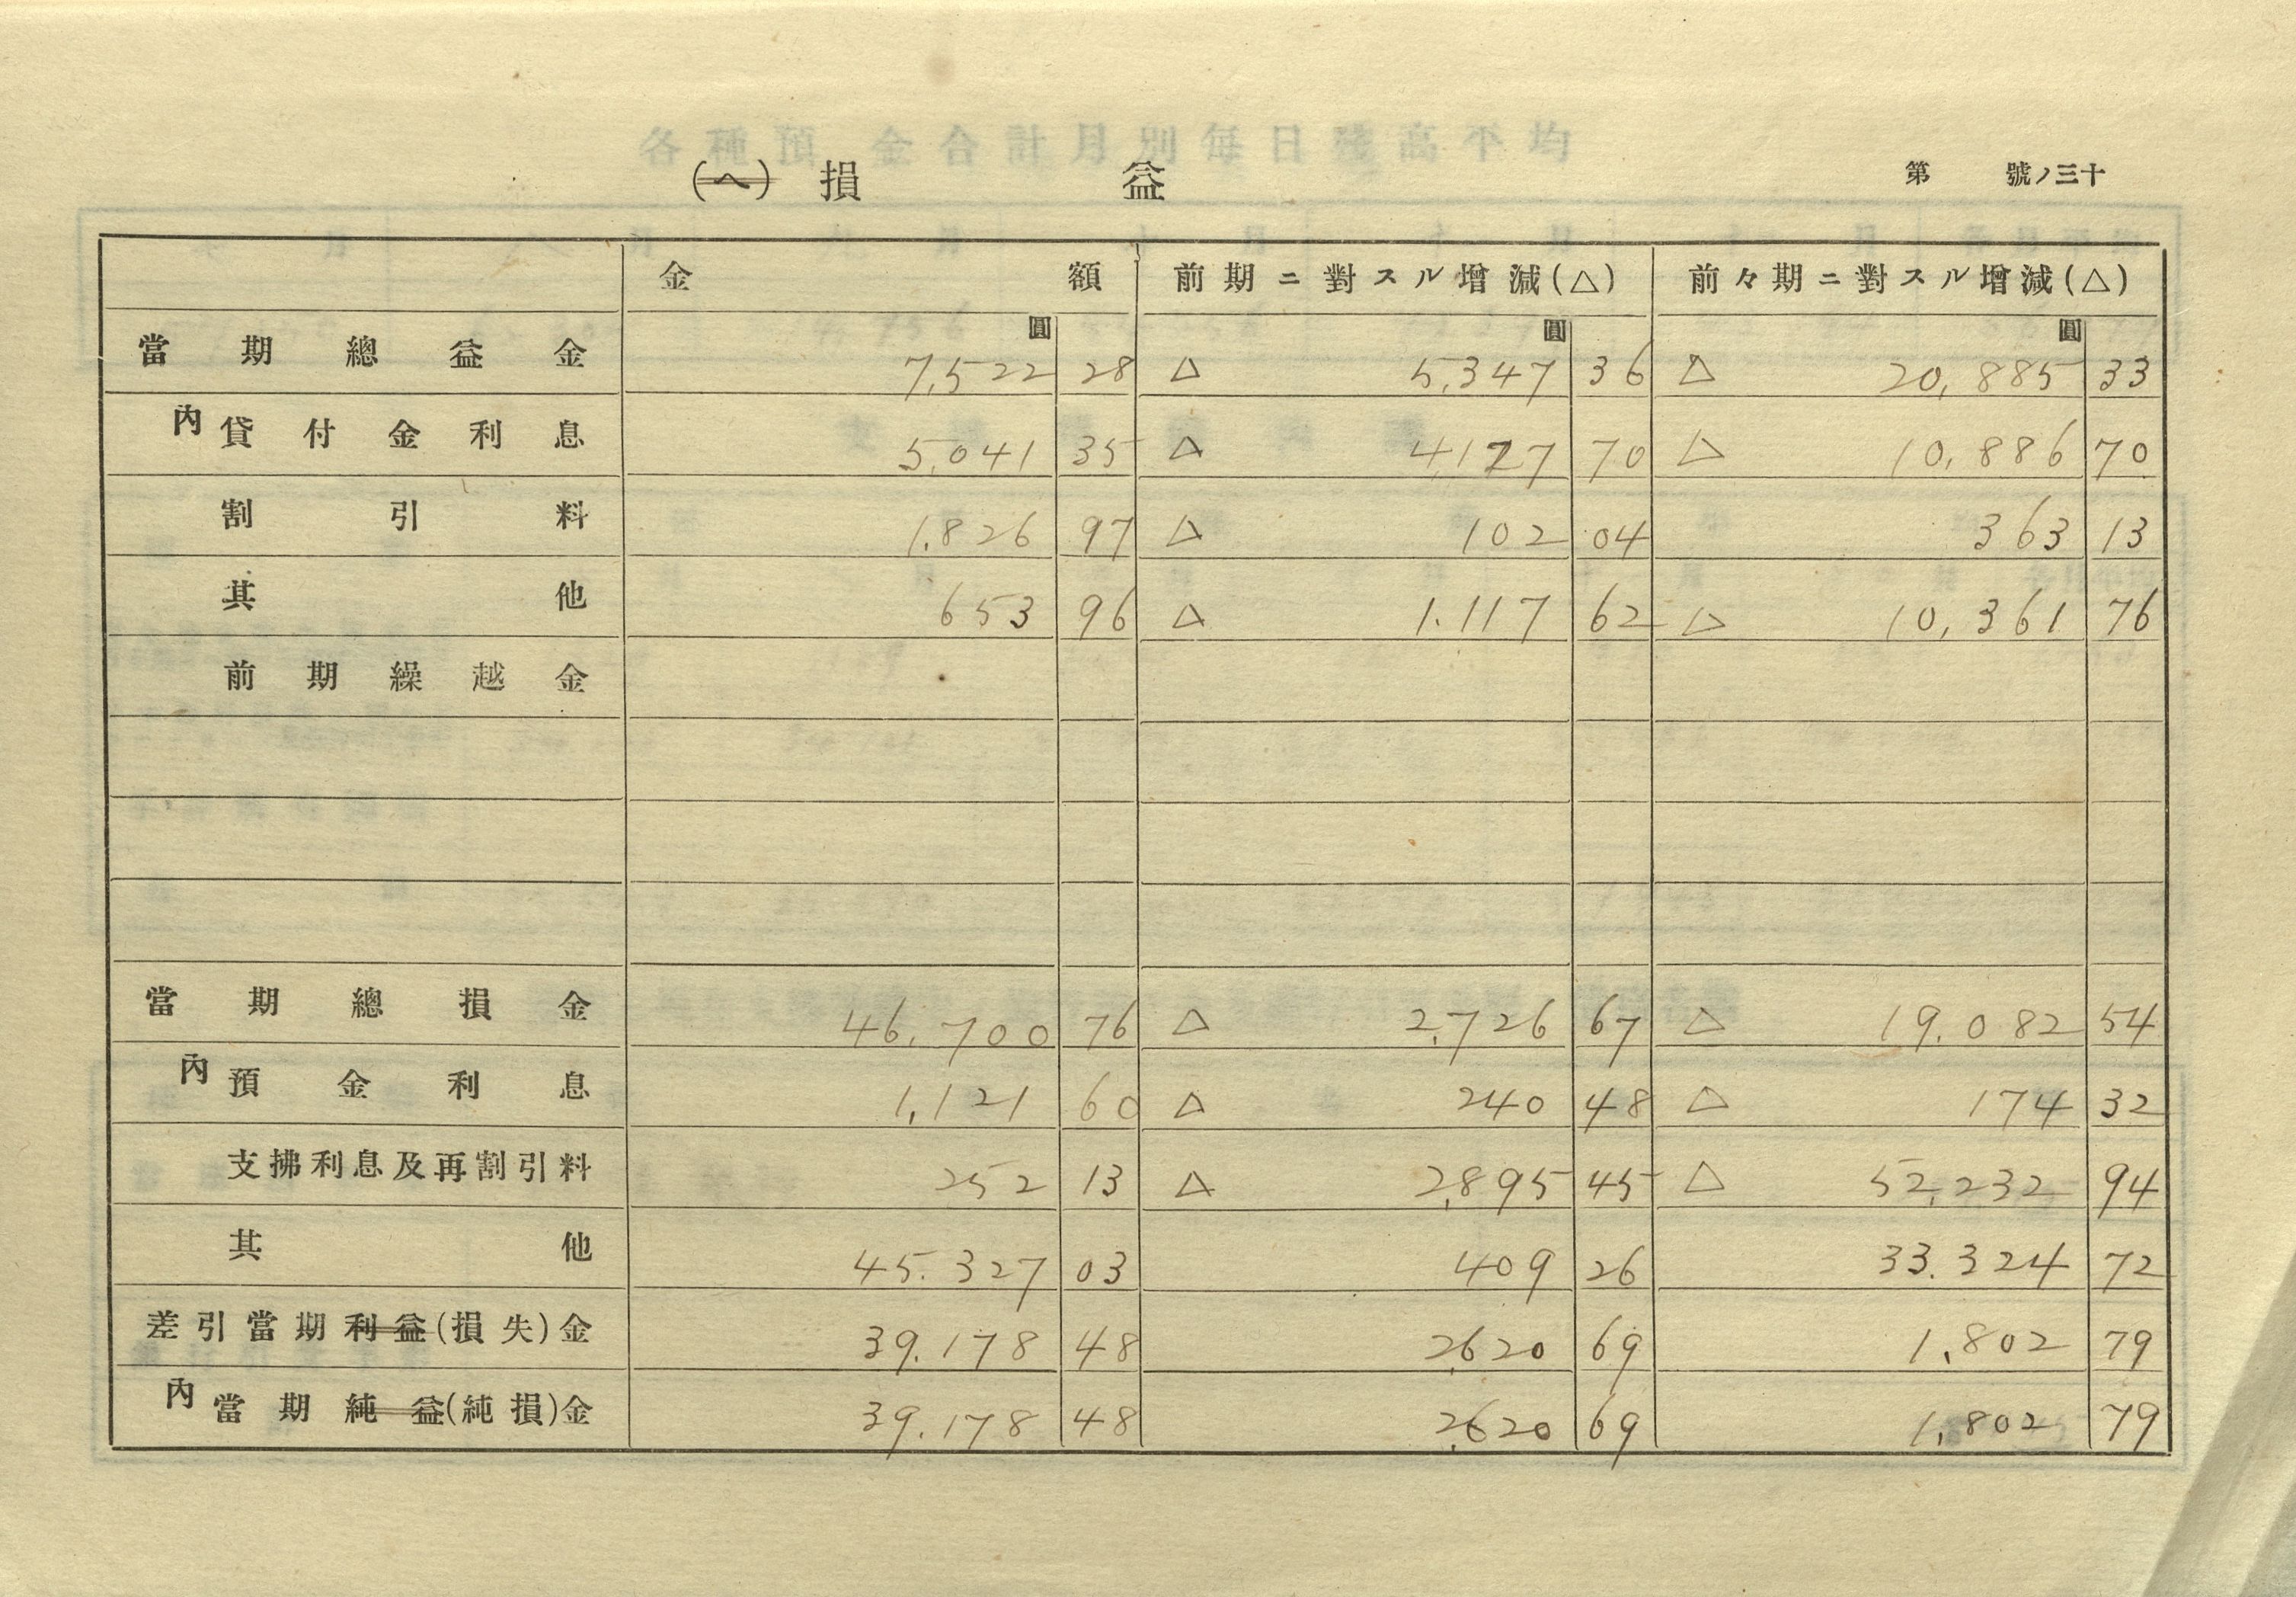 (ヘ) 損 益 第 號ノ三十
金 額 前期ニ對スル增減(△) 前々期ニ對スル增減(△)
圓 圓 圓
當期總益金 7,522 28 △ 5,347 36 △ 20,885 33
內貸付金利息 5,041 35 △ 4,127 70 △ 10,886 70
割引料 1,826 97 △ 102 04 363 13
其他 653 96 △ 1.117 62 △ 10,361 76
前期繰越金
當期總損金 46,700 76 △ 2,726 67 △ 19.082 54
內預金利息 1,121 60 △ 240 48 △ 174 32
支拂利息及再割引料 252 13 △ 2,895 45 △ 52,232 94
其他 45.327 03 409 26 33.324 72
差引當期利益(損失)金 39.178 48 2,620 69 1,802 79
內當期純益(純損)金 39.178 48 2,620 69 1,802 79